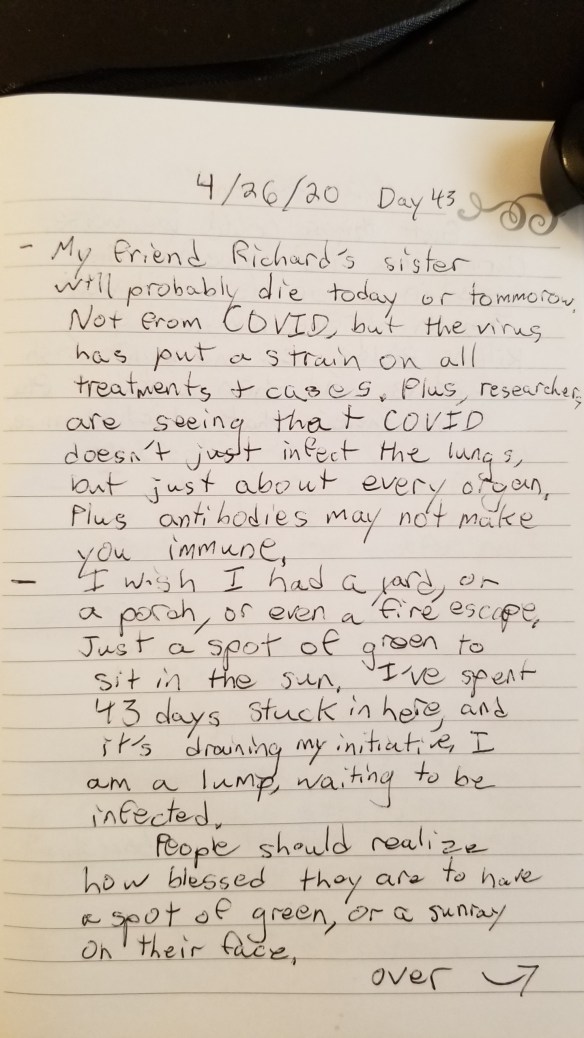 4/26/20 Day 43
- My friend Richard's sister
will probably die today or tommorow.
Not from COVID, but the virus
has put a strain on all
treatments + cases. Plus, researchers
are seeing that COVID
doesn't just infect the lungs,
but just about every organ.
Plus antibodies may not make
you immune.
- I wish I had a yard, or
a porch, or even a fire escape.
Just a spot of green to
sit in the sun. I've spent
43 days stuck in here, and
it's draining my initiative, I
am a lump, waiting to be
infected.
People should realize
how blessed they are to have
a spot of green, or a sunray
on their face.
over →